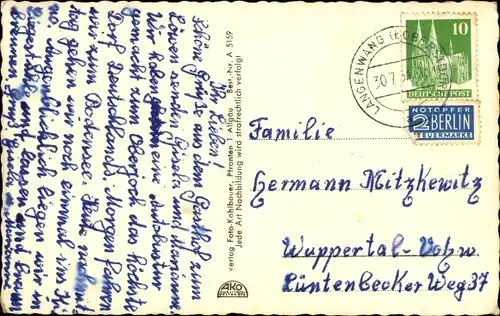 Ihr Lieben!
Schöne Grüße aus dem Gasthof zum
Löwen senden Gisela und Mariann.
Wir haben eine Autobustour
gemacht zum Oberjoch das höchste
Dorf Deutschlands. Morgen fahren
wir zum Bodensee. Heute nachmit
tag gehen wir noch einmal ins Ki
no. Augenblicklich liegen wir im
Liegestuhl und lassen uns braun
brennen
verlag Foto-Kohlbauer, Pfronten 1 Allgäu Best.-Nr. A 5159
Jede Art Nachbildung wird strafrechtlich verfolgt
AKO
LANGENWANG (b. OBERSTDORF)
30.7.5
10
DEUTSCHE POST
NOTOPFER
2 BERLIN
STEUERMARKE
Familie
Hermann Mitzkewitz
Wuppertal-Vohw.
Lüntenbecker Weg 37